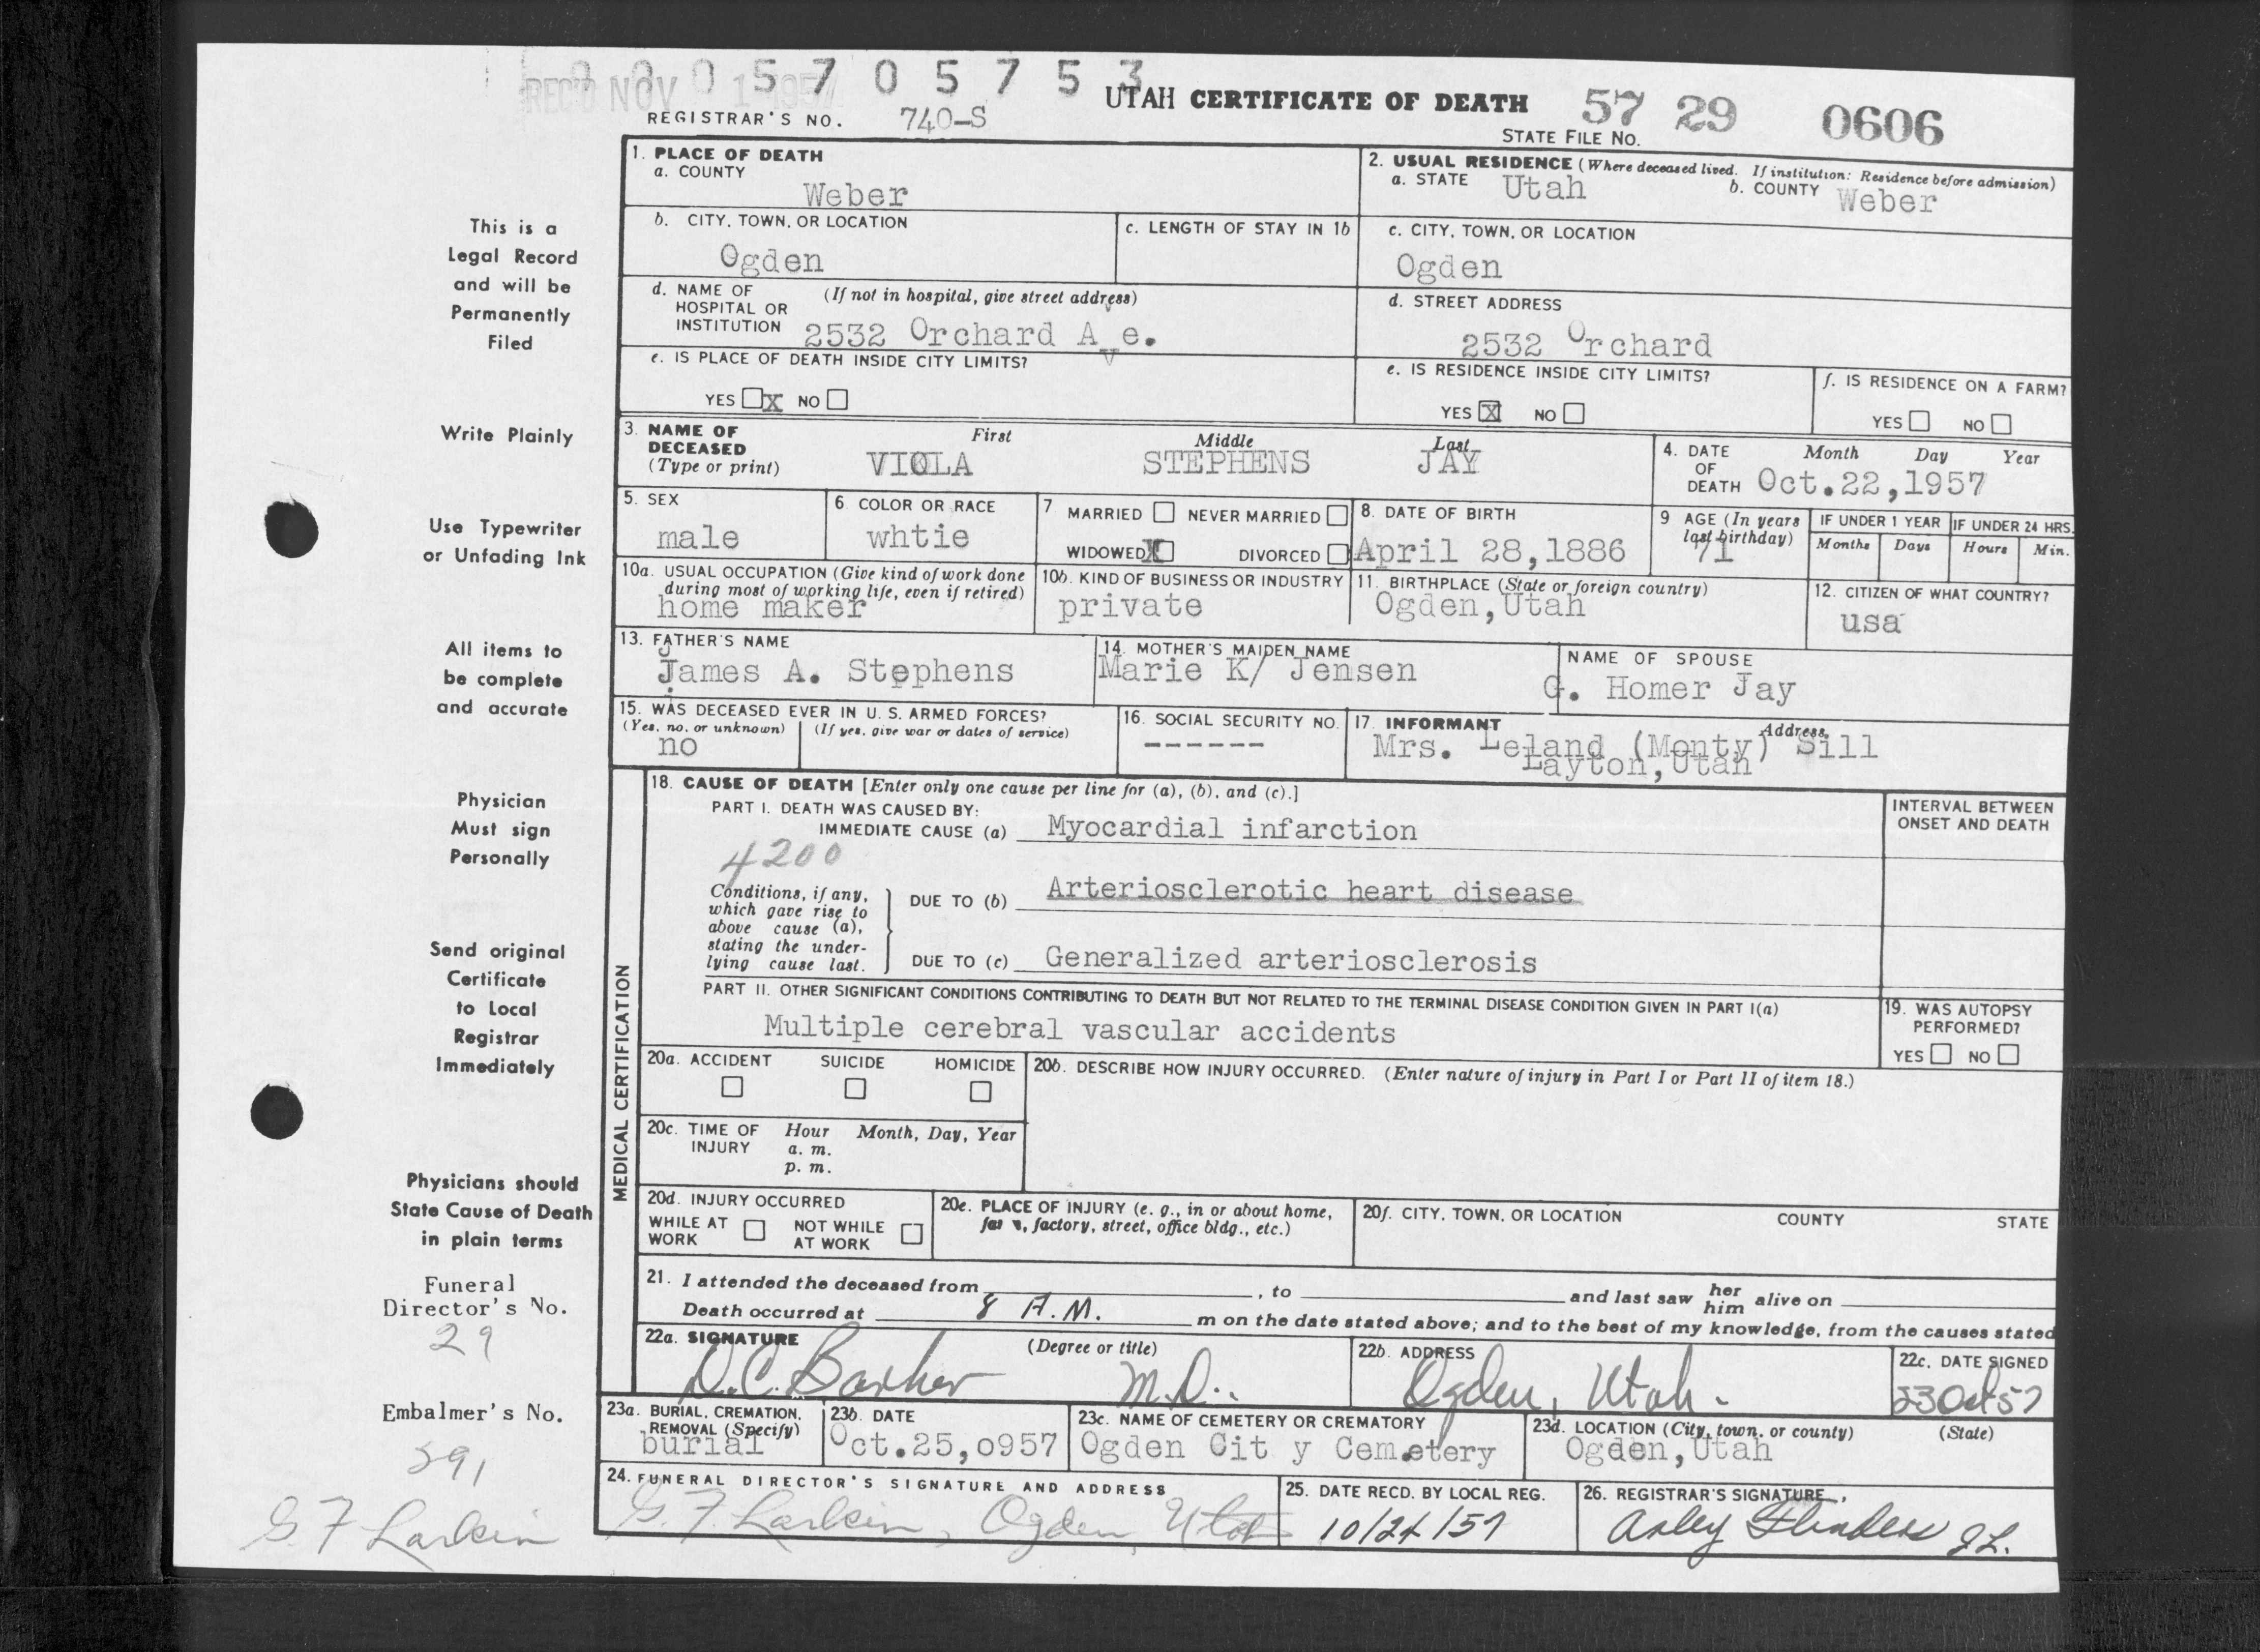 REC'D NOV 1 1957
0 5 7 0 5 7 5 3
UTAH CERTIFICATE OF DEATH 57 29 0606
REGISTRAR'S NO. 740-S
STATE FILE NO.
This is a
Legal Record
and will be
Permanently
Filed
Write Plainly
Use Typewriter
or Unfading Ink
All items to
be complete
and accurate
Physician
Must sign
Personally
Send original
Certificate
to Local
Registrar
Immediately
Physicians should
State Cause of Death
in plain terms
Funeral
Director's No.
29
Embalmer's No.
591
G. F Larkin
1. PLACE OF DEATH
a. COUNTY
Weber
2. USUAL RESIDENCE (Where deceased lived. If institution: Residence before admission)
a. STATE Utah b. COUNTY Weber
b. CITY, TOWN, OR LOCATION
Ogden
c. LENGTH OF STAY IN 1b
c. CITY, TOWN, OR LOCATION
Ogden
d. NAME OF (If not in hospital, give street address)
HOSPITAL OR
INSTITUTION 2532 Orchard Ave.
d. STREET ADDRESS
2532 Orchard
e. IS PLACE OF DEATH INSIDE CITY LIMITS?
YES X NO
e. IS RESIDENCE INSIDE CITY LIMITS?
YES X NO
f. IS RESIDENCE ON A FARM?
YES NO
3. NAME OF First Middle Last
DECEASED
(Type or print) VIOLA STEPHENS JAY
4. DATE Month Day Year
OF
DEATH Oct.22,1957
5. SEX
male
6 COLOR OR RACE
whtie
7 MARRIED NEVER MARRIED
WIDOWED X DIVORCED
8. DATE OF BIRTH
April 28,1886
9 AGE (In years
last birthday)
71
IF UNDER 1 YEAR IF UNDER 24 HRS.
Months Days Hours Min.
10a. USUAL OCCUPATION (Give kind of work done
during most of working life, even if retired)
home maker
10b. KIND OF BUSINESS OR INDUSTRY
private
11. BIRTHPLACE (State or foreign country)
Ogden,Utah
12. CITIZEN OF WHAT COUNTRY?
usa
13. FATHER'S NAME
James A. Stephens
14. MOTHER'S MAIDEN NAME
Marie K/ Jensen
NAME OF SPOUSE
G. Homer Jay
15. WAS DECEASED EVER IN U. S. ARMED FORCES?
(Yes, no, or unknown) (If yes, give war or dates of service)
no
16. SOCIAL SECURITY NO.
------
17. INFORMANT Address
Mrs. Leland (Monty) Sill
Layton,Utah
MEDICAL CERTIFICATION
18. CAUSE OF DEATH [Enter only one cause per line for (a), (b), and (c).]
PART I. DEATH WAS CAUSED BY:
IMMEDIATE CAUSE (a) Myocardial infarction
INTERVAL BETWEEN
ONSET AND DEATH
4200
Conditions, if any,
which gave rise to
above cause (a),
stating the under-
lying cause last.
DUE TO (b) Arteriosclerotic heart disease
DUE TO (c) Generalized arteriosclerosis
PART II. OTHER SIGNIFICANT CONDITIONS CONTRIBUTING TO DEATH BUT NOT RELATED TO THE TERMINAL DISEASE CONDITION GIVEN IN PART I(a)
Multiple cerebral vascular accidents
19. WAS AUTOPSY
PERFORMED?
YES NO
20a. ACCIDENT SUICIDE HOMICIDE
20b. DESCRIBE HOW INJURY OCCURRED. (Enter nature of injury in Part I or Part II of item 18.)
20c. TIME OF Hour Month, Day, Year
INJURY a. m.
p. m.
20d. INJURY OCCURRED
WHILE AT NOT WHILE
WORK AT WORK
20e. PLACE OF INJURY (e. g., in or about home,
factory, street, office bldg., etc.)
20f. CITY, TOWN, OR LOCATION COUNTY STATE
21. I attended the deceased from , to and last saw her him alive on
Death occurred at 8 A.M. m on the date stated above; and to the best of my knowledge, from the causes stated
22a. SIGNATURE (Degree or title)
D.C. Barker M.D.
22b. ADDRESS
Ogden, Utah.
22c. DATE SIGNED
23 Oct 57
23a. BURIAL, CREMATION,
REMOVAL (Specify)
burial
23b. DATE
Oct.25,0957
23c. NAME OF CEMETERY OR CREMATORY
Ogden Cit y Cemetery
23d. LOCATION (City, town, or county) (State)
Ogden,Utah
24. FUNERAL DIRECTOR'S SIGNATURE AND ADDRESS
G. F. Larkin, Ogden, Utah
25. DATE RECD. BY LOCAL REG.
10/24/57
26. REGISTRAR'S SIGNATURE
Flinders